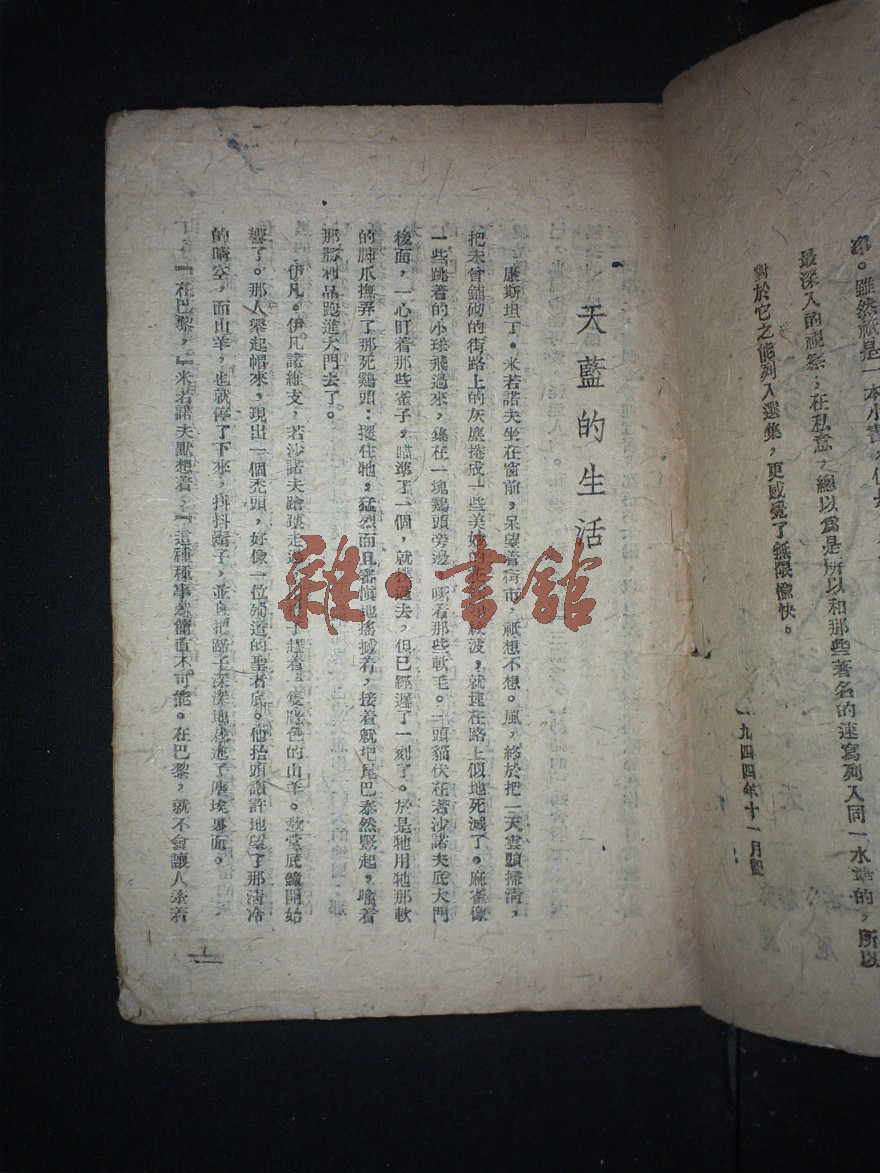 最深入的視察；在私意，總以爲是所以和那些著名的速寫列入同一水準的，所以
對於它之能列入選集，更感覺了無限愉快。
一九四四年十一月記
天藍的生活
康斯坦丁。米若諾夫坐在窗前，呆望着街市，祇想不想。風，終於把一天雲頭掃清，
把未曾鋪砌的街路上的灰塵捲成一些美妙的
波，就連在路上似地死滅了。麻雀像
一些跳着的小球飛過來，集在一塊鷄頭旁邊，啄着那些軟毛。一頭貓伏在若沙諾夫底大門
後面，一心盯着那些雀子，瞄準了一個，就撲過去，但已經遲了一刻了。於是牠用牠那軟
的脚爪撫弄了那死鷄頭：攫住牠，猛烈而且審愼地搖撼着，接着就把尾巴泰然豎起，啣着
那勝利品跑進大門去了。
伊凡。伊凡諾維支，若沙諾夫蹌踉走過
趕着一隻
色的山羊。教堂底鐘開始
響了。那人舉起帽來，現出一個禿頭，好像一位殉道的聖者底。他抬頭讚許地望了那淸冷
的晴空，而山羊，也就停了下來，抖抖鬍子，並且把蹄子深深地
進了塵埃裏面。
『在巴黎，』米若諾夫默想着，『這種種事就簡直不可能。在巴黎，就不會讓人牽着
1
雜·書館